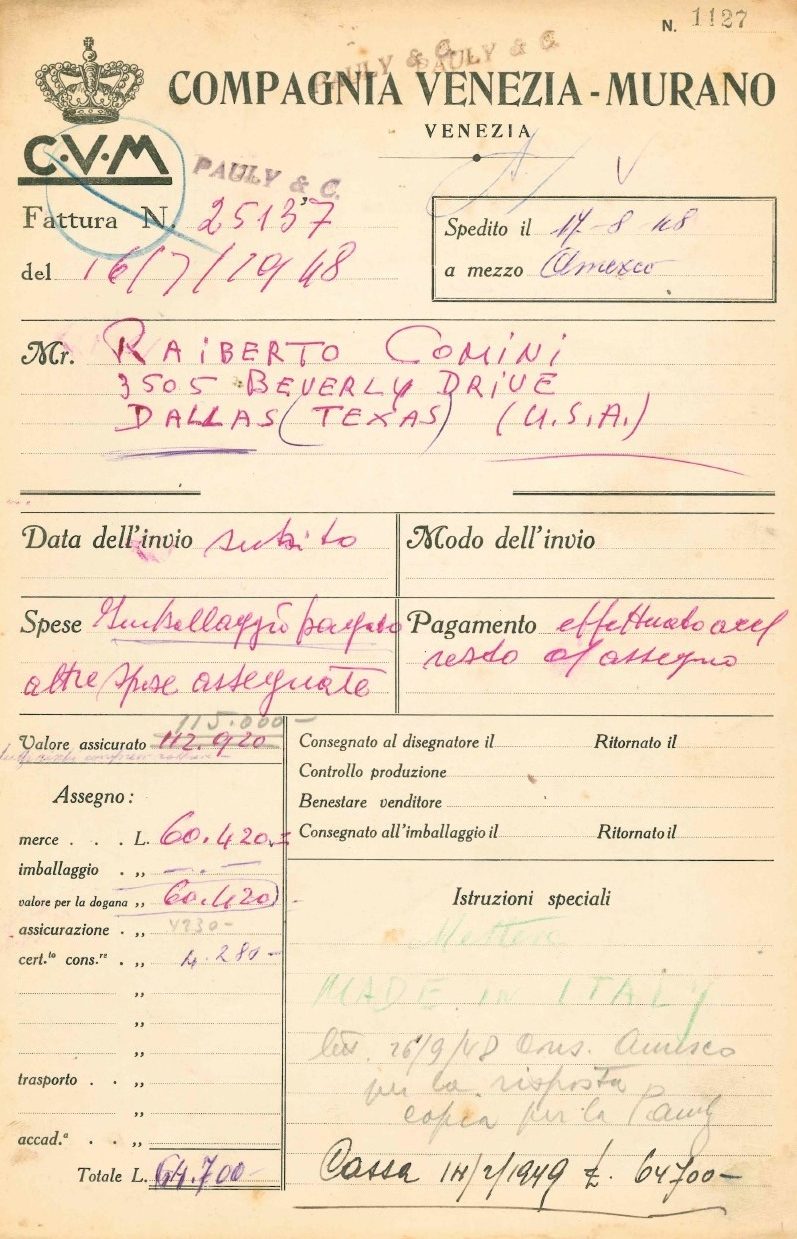 N. 1127
PAULY & C. PAULY & C.
COMPAGNIA VENEZIA - MURANO
VENEZIA
C·V·M
PAULY & C.
Fattura N. 25137
del 16/7/1948
Spedito il 17-8-48
a mezzo Amexco
Mr. RAIBERTO COMINI
3505 BEVERLY DRIVE
DALLAS (TEXAS) (U.S.A.)
Data dell'invio subito
Modo dell'invio
Spese Imballaggio pagato
altre spese assegnate
Pagamento effettuato
resto assegno
115.000-
Valore assicurato 112.920
Assegno:
merce . . . L. 60.420.=
imballaggio . „ —.—
valore per la dogana „ 60.420
assicurazione . „ 4230-
cert.to cons.re . „ 4.280-
„
„
„
trasporto . . „
„
accad.a . . „
Totale L. 64.700-
Consegnato al disegnatore il Ritornato il
Controllo produzione
Benestare venditore
Consegnato all'imballaggio il Ritornato il
Istruzioni speciali
Mettere
MADE IN ITALY
26/9/48 Cons. Amexco
per la risposta
copia per la Pauly
Cassa 14/2/1949 £. 64700-